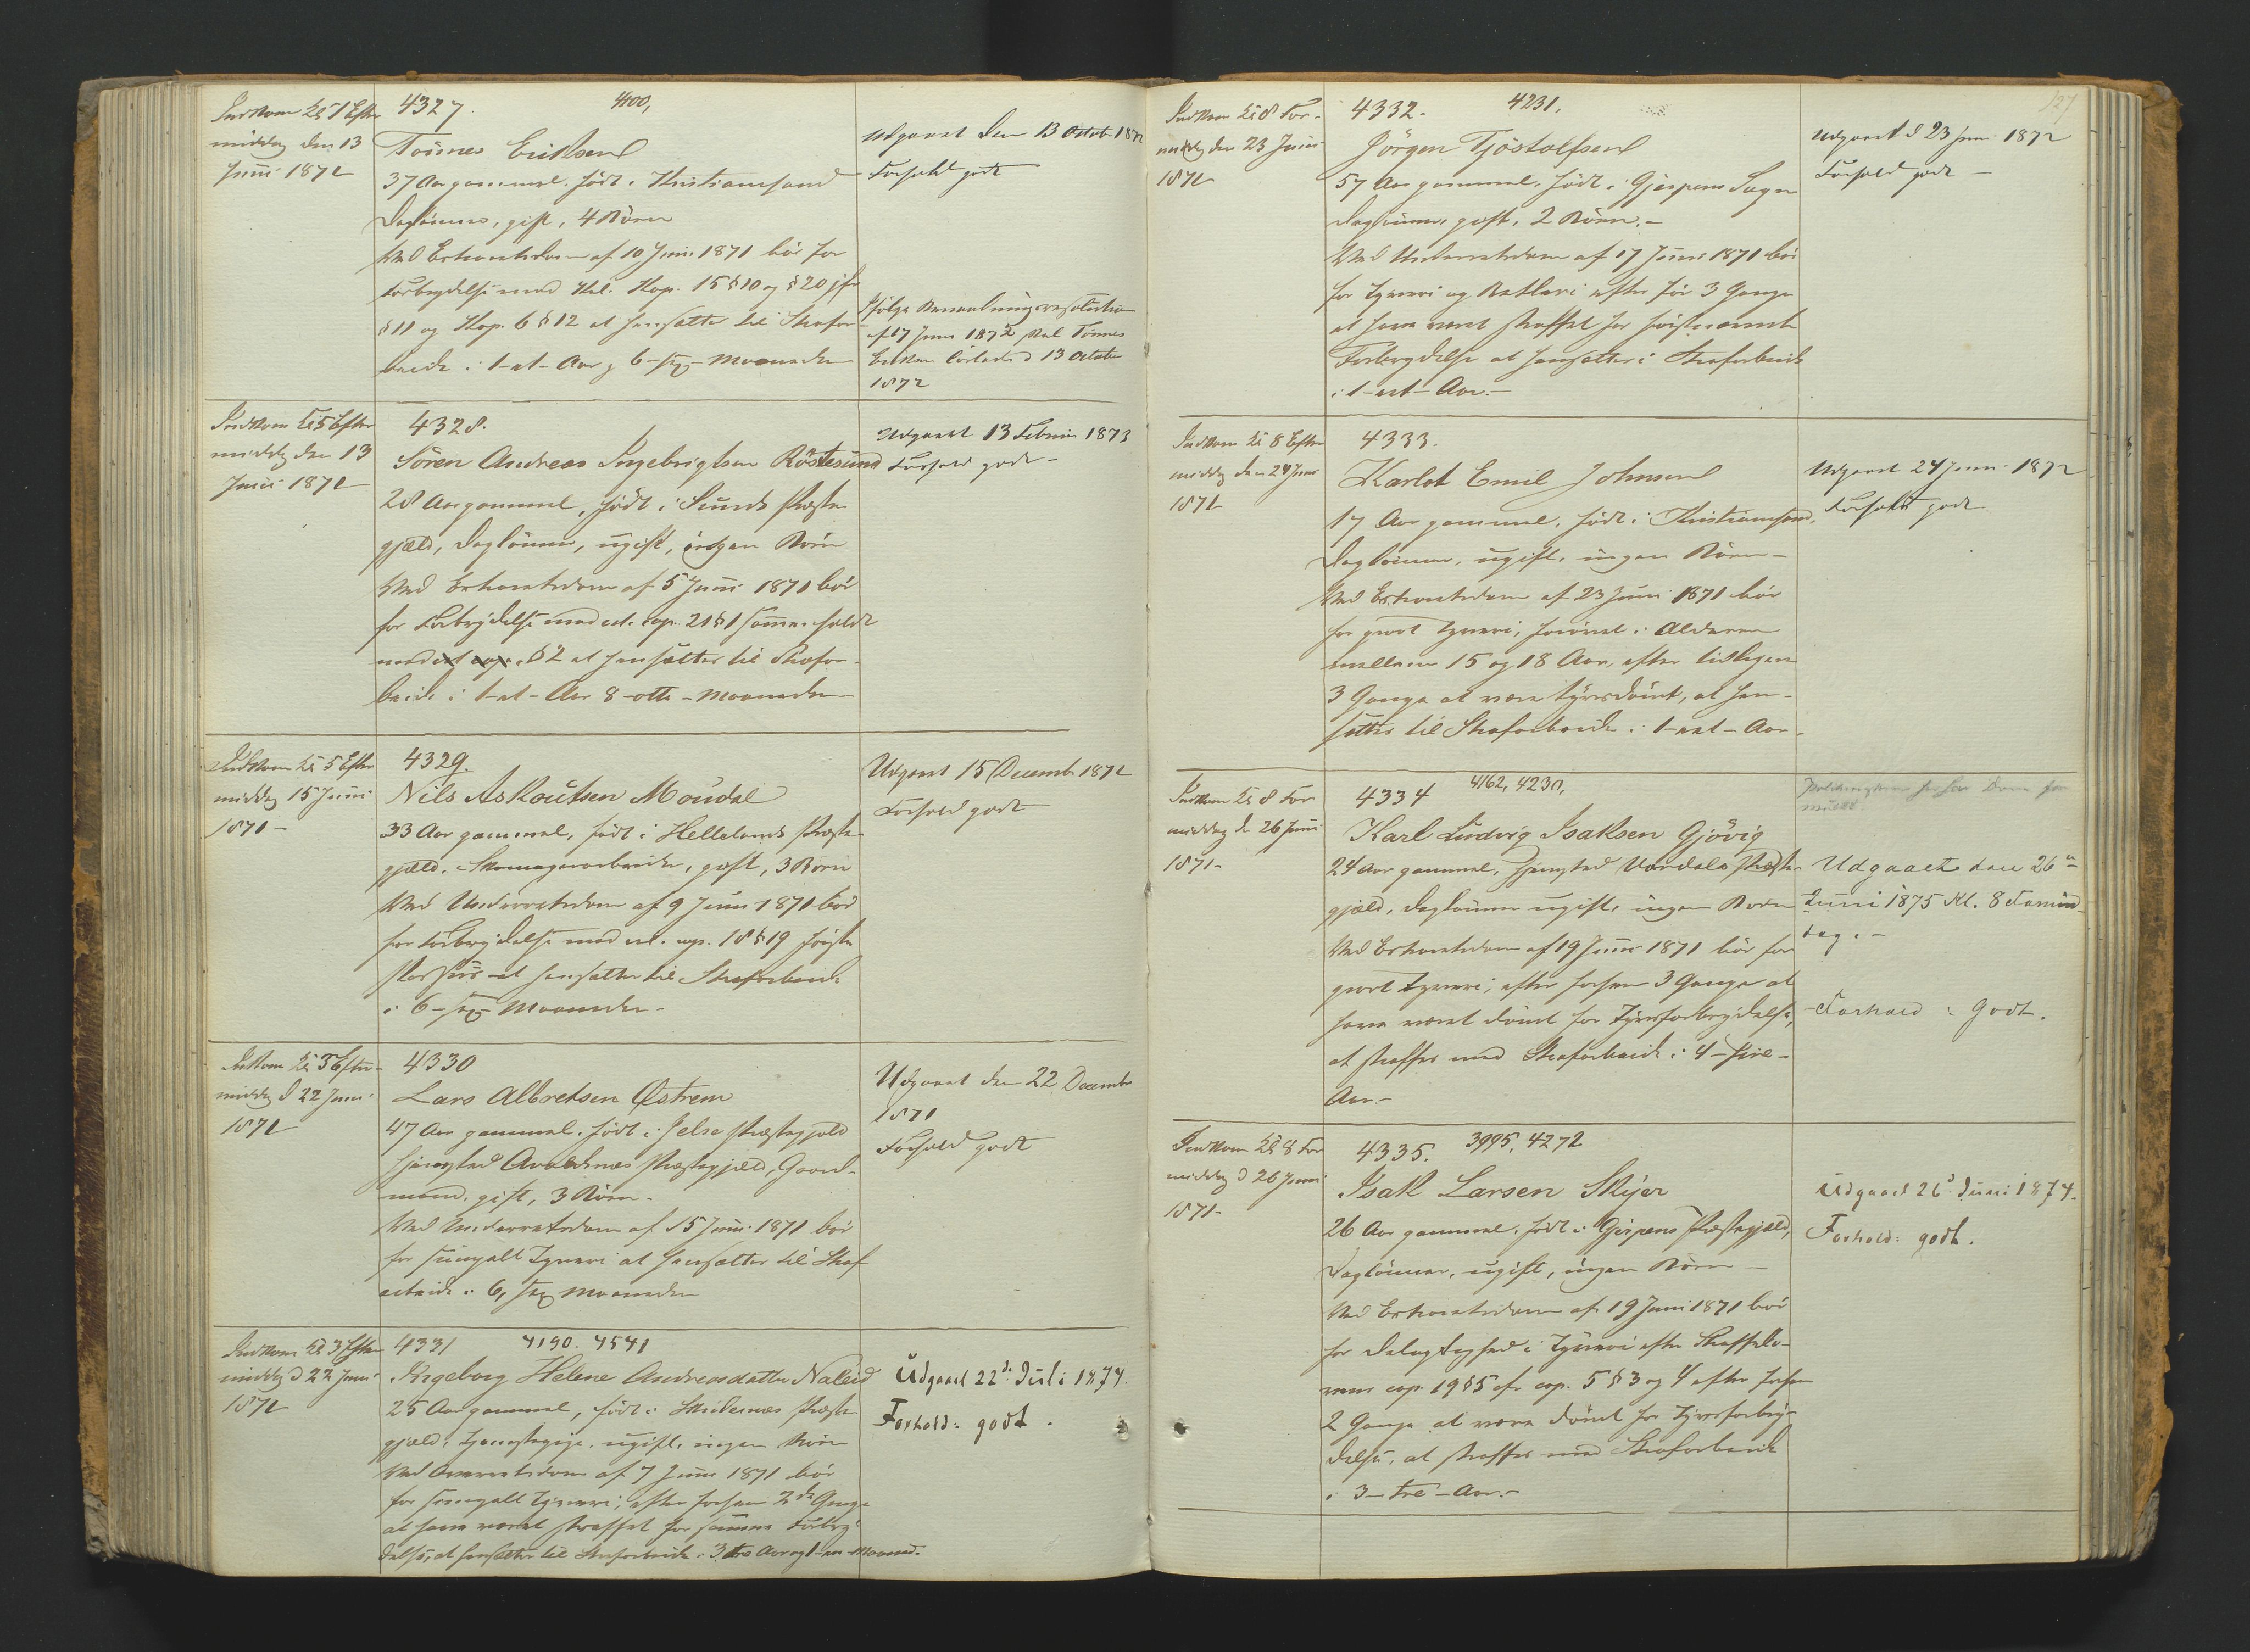 Indkom Kl 7 Efter
middag den 13
Juni 1871
4327.
4100,
Tönnes Eriksen
37 Aar gammel. födt i Kristiansand
Daglönner, gift, 4 Börn
Ved Extraretsdom af 10 Juni 1871 bör for
Forbrydelse mod Krl. Kap. 15 § 10 og § 20 jfr
§ 11 og Kap. 6 § 12 at hensættes til Strafar-
beide i 1 - et - Aar og 6 - sex - Maaneder
Udgaaet den 13 Octob. 1872
Forhold godt
Ifölge Benaadningsresolution
af 17 Juni 1872 skal Tönnes
Eriksen löslades 13 October
1872
Indkom Kl 5 Efter
middag den 13
Juni 1871
4328.
Sören Andreas Ingebrigtsen Röstesund
28 Aar gammel, födt i Sunds Præste
gjæld, Daglönner, ugift, ingen Börn
Ved Extraretsdom af 5 Juni 1871 bör
for Forbrydelse mod crl. cap. 21 § 1 sammenholdt
med § 2 at hensættes til Strafar-
beide i 1 - et - Aar 8 - otte - Maaneder
Udgaaet 13 Februar 1873
Forhold godt -
Indkom Kl 5 Efter
middag 15 Juni
1871 -
4329.
Nils Askoutsen Moudal
33 Aar gammel, födt i Hellelands Præste
gjæld. Skomagerarbeider, gift, 3 Börn
Ved Underretsdom af 9 Juni 1871 bör
for Forbrydelse mod crl. cap. 18 § 19 förste
at hensættes til Strafarbeide
i 6 - sex - Maaneder -
Udgaaet 15 Decemb. 1871
Forhold godt
Indkom Kl 3 Efter-
middag d 22 Juni
1871
4330
Lars Albretsen Östrem
47 Aar gammel. födt i Jelse Præstegjæld
hjemsted Avaldsnæs Præstegjæld, Gaard-
mand, gift, 3 Börn -
Ved Underretsdom af 15 Juni 1871 bör
for simpelt Tyveri at hensættes til Straf
arbeide i 6, sex Maaneder
Udgaaet den 22 Decembr
1871
Forhold godt
Indkom Kl 3 Efter
middag d 22 Juni
1871
4331
4190. 4541
Ingeborg Helene Andreasdatter Naleid
25 Aar gammel, födt i Skudesnæs Præste
gjæld, Tjenestepige, ugift, ingen Börn
Ved Overretsdom af 7 Juni 1871 bör
for simpelt Tyveri, efter forhen 2de Gange
at have været straffet for samme Forbry-
delse, at hensættes til Strafarbeide i 3 tre Aar og 1 - en - Maaned.
Udgaaet 22de Juli 1874.
Forhold: godt.
127
Indkom Kl 8 For-
middag den 23 Juni
1871
4332.
4231.
Jörgen Tjöstolfsen
57 Aar gammel. födt i Gjerpens Sogn
Daglönner, gift, 2 Börn. -
Ved Underretsdom af 17 Juni 1871 bör
for Tyveri og Betleri efter för 3 Gange
at have været straffet for förstnævnte
Forbrydelse at hensættes i Strafarbeide
i 1 - et - Aar. -
Udgaaet d 23 Juni 1872
Forhold godt -
Indkom Kl 8 Efter
middag den 24 Juni
1871
4333.
Karlot Emil Johnsen
17 Aar gammel, födt i Kristiansand,
Daglönner, ugift, ingen Börn -
Ved Extraretsdom af 23 Juni 1871 bör
for grovt Tyveri, forövet i Alderen
mellem 15 og 18 Aar, efter tidligere
3 Gange at være tyvsdömt, at hen-
sættes til Strafarbeide i 1 - eet - Aar.
Udgaaet 24 Juni 1872
Forhold godt
Indkom Kl 8 For
middag d 26 Juni
1871 -
4334
4162, 4230,
Karl Ludvig Isaksen Gjövig
24 Aar gammel, hjemsted Vardals Præste-
gjæld, Daglönner ugift, ingen Börn
Ved Extraretsdom af 19 Juni 1871 bör for
grovt Tyveri, efter forhen 3 Gange at
have været dömt for Tyvsforbrydelse,
at straffes med Strafarbeide i 4 - fire -
Aar. -
Udgaaet den 26de
Juni 1875 Kl. 8 Formid-
dag. -
Forhold: Godt.
Indkom Kl 8 For
middag d 26 Juni
1871 -
4335.
3995, 4272
Isak Larsen Skyer
26 Aar gammel. födt i Gjerpens Præstegjæld,
Daglönner, ugift, ingen Börn -
Ved Extraretsdom af 19 Juni 1871 bör
for Delagtighed i Tyveri efter Straffelo-
vens cap. 19 § 5 cfr cap. 5 § 3 og 4 efter forhen
2 Gange at være dömt for Tyvsforbry-
delse, at straffes med Strafarbeide
i 3 - tre - Aar. -
Udgaaet 26de Juni 1874.
Forhold: godt.